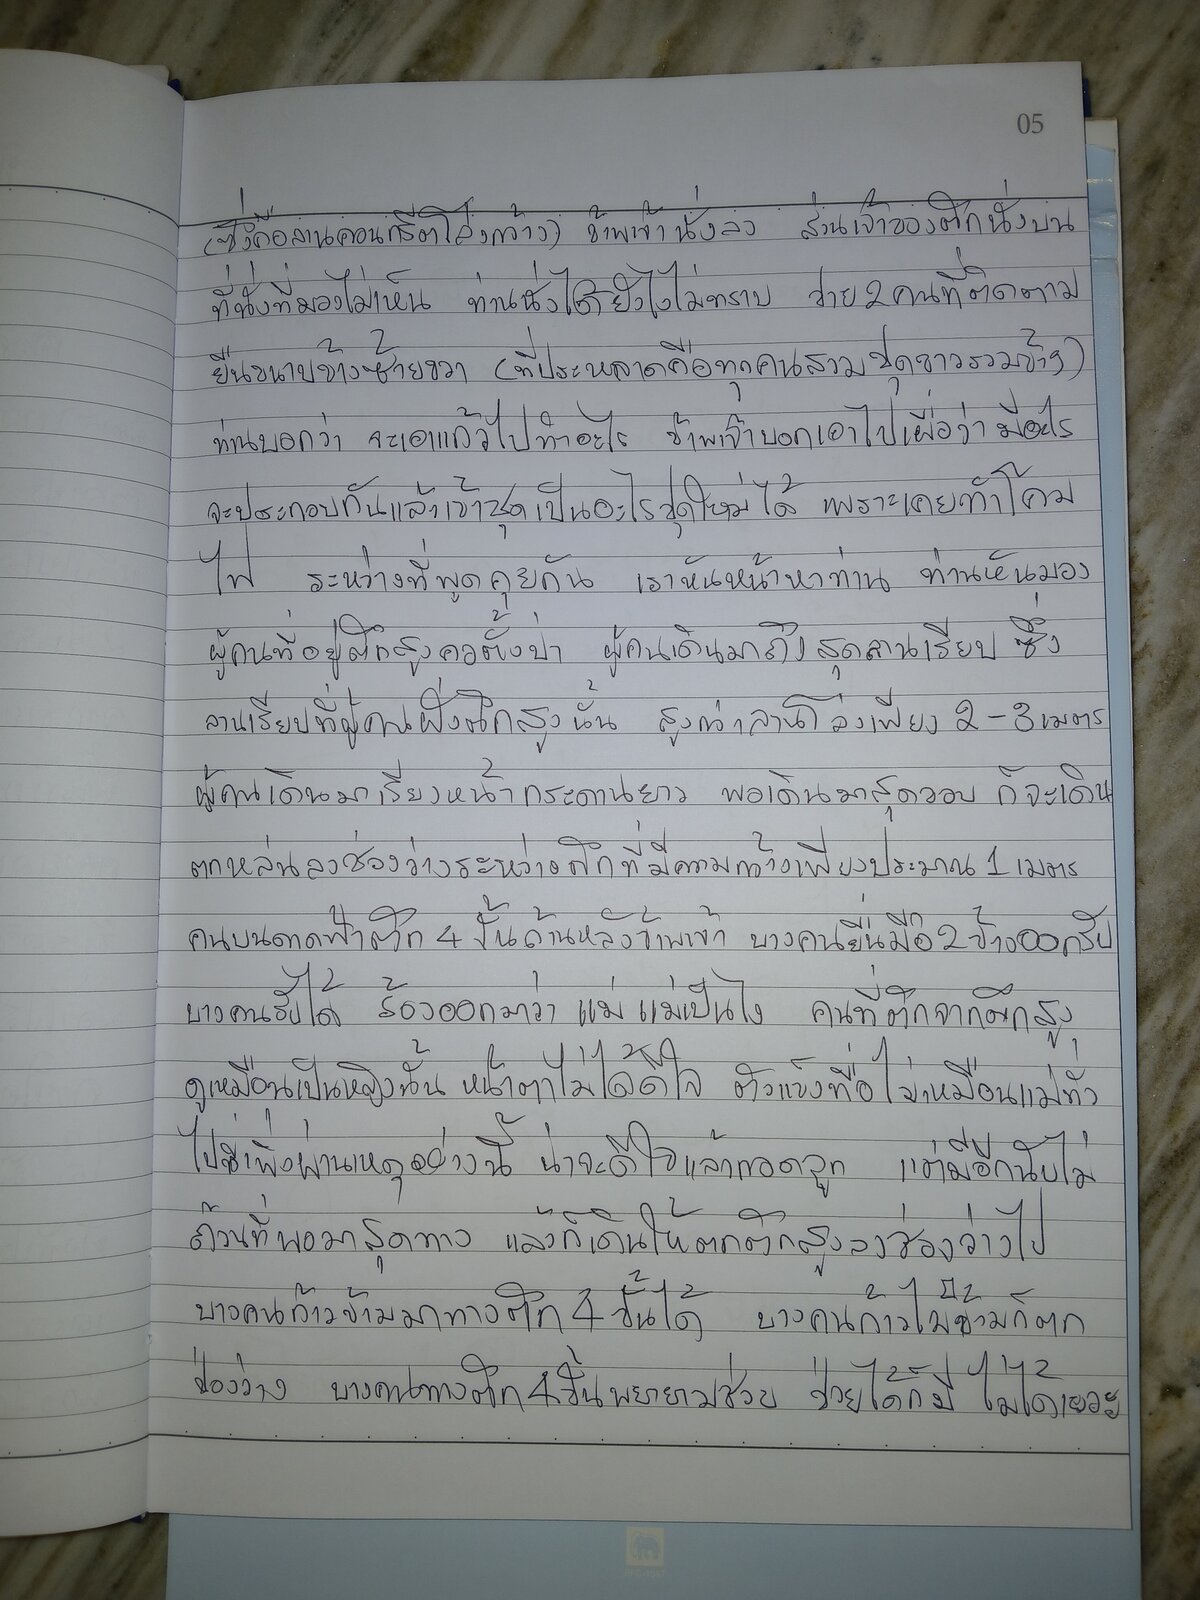 05
(ซึ่งคือลานคอนกรีตโล่งกว้าง) ข้าพเจ้านั่งลง ส่วนเจ้าของตึกนั่งบน
ที่นั่งที่มองไม่เห็น ท่านนั่งได้ยังไงไม่ทราบ ชาย 2 คนที่ติดตาม
ยืนขนาบข้างซ้ายขวา (ที่ประหลาดคือทุกคนสวมชุดขาวรวมข้าฯ)
ท่านบอกว่า จะเอาแก้วไปทำอะไร ข้าพเจ้าบอกเอาไปเผื่อว่ามีอะไร
จะประกอบกันแล้วเข้าชุดเป็นอะไรชุดใหม่ได้ เพราะเคยทำโคม
ไฟ ระหว่างที่พูดคุยกัน เราหันหน้าหาท่าน ท่านหันมอง
ผู้คนที่อยู่ตึกสูงคอตั้งบ่า ผู้คนเดินมาถึงสุดลานเรียบ ซึ่ง
ลานเรียบที่ผู้คนฝั่งตึกสูงนั้น สูงกว่าลานโล่งเพียง 2 - 3 เมตร
ผู้คนเดินมาเรียงหน้ากระดานยาว พอเดินมาสุดขอบ ก็จะเดิน
ตกหล่นลงช่องว่างระหว่างตึกที่มีความกว้างเพียงประมาณ 1 เมตร
คนบนดาดฟ้าตึก 4 ชั้นด้านหลังข้าพเจ้า บางคนยื่นมือ 2 ข้างออกรับ
บางคนรับได้ ร้องออกมาว่า แม่ แม่เป็นไง คนที่ตกจากตึกสูง
ดูเหมือนเป็นหญิงนั้น หน้าตาไม่ได้ดีใจ ตัวแข็งทื่อ ไม่เหมือนแม่ทั่ว
ไปที่เพิ่งผ่านเหตุอย่างนี้ น่าจะดีใจแล้วกอดลูก แต่มีอีกนับไม่
ถ้วนที่พอมาสุดทาง แล้วก็เดินให้ตกตึกสูงลงช่องว่างไป
บางคนก้าวข้ามมาทางตึก 4 ชั้นได้ บางคนก้าวไม่ข้ามก็ตก
ช่องว่าง บางคนทางตึก 4 ชั้นพยายามช่วย ช่วยได้ก็มี ไม่ได้เยอะ